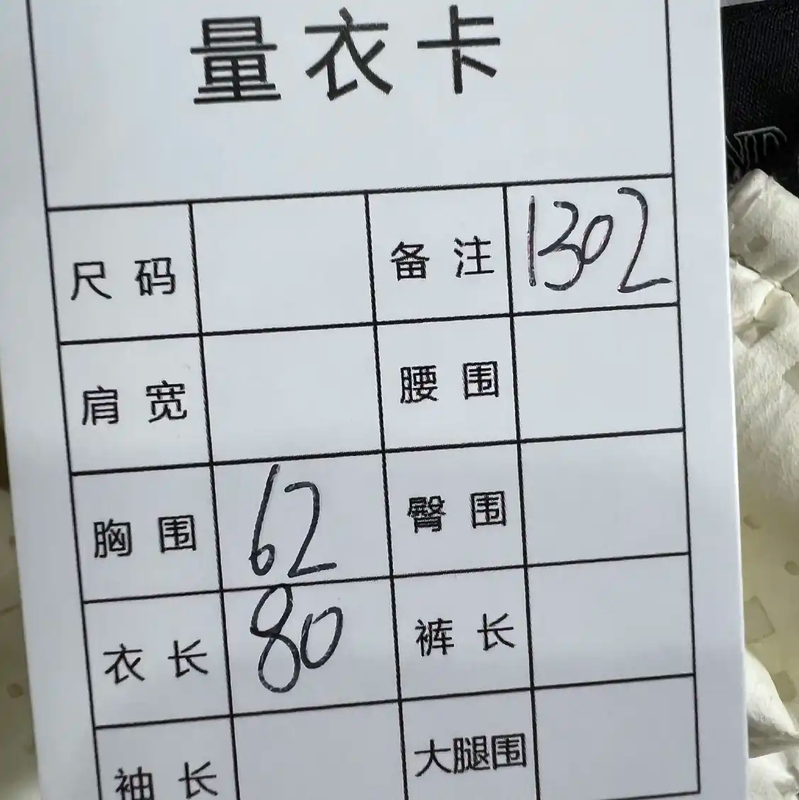 量衣卡
尺码 备注 1302
肩宽 腰围
胸围 62 臀围
衣长 80 裤长
袖长 大腿围